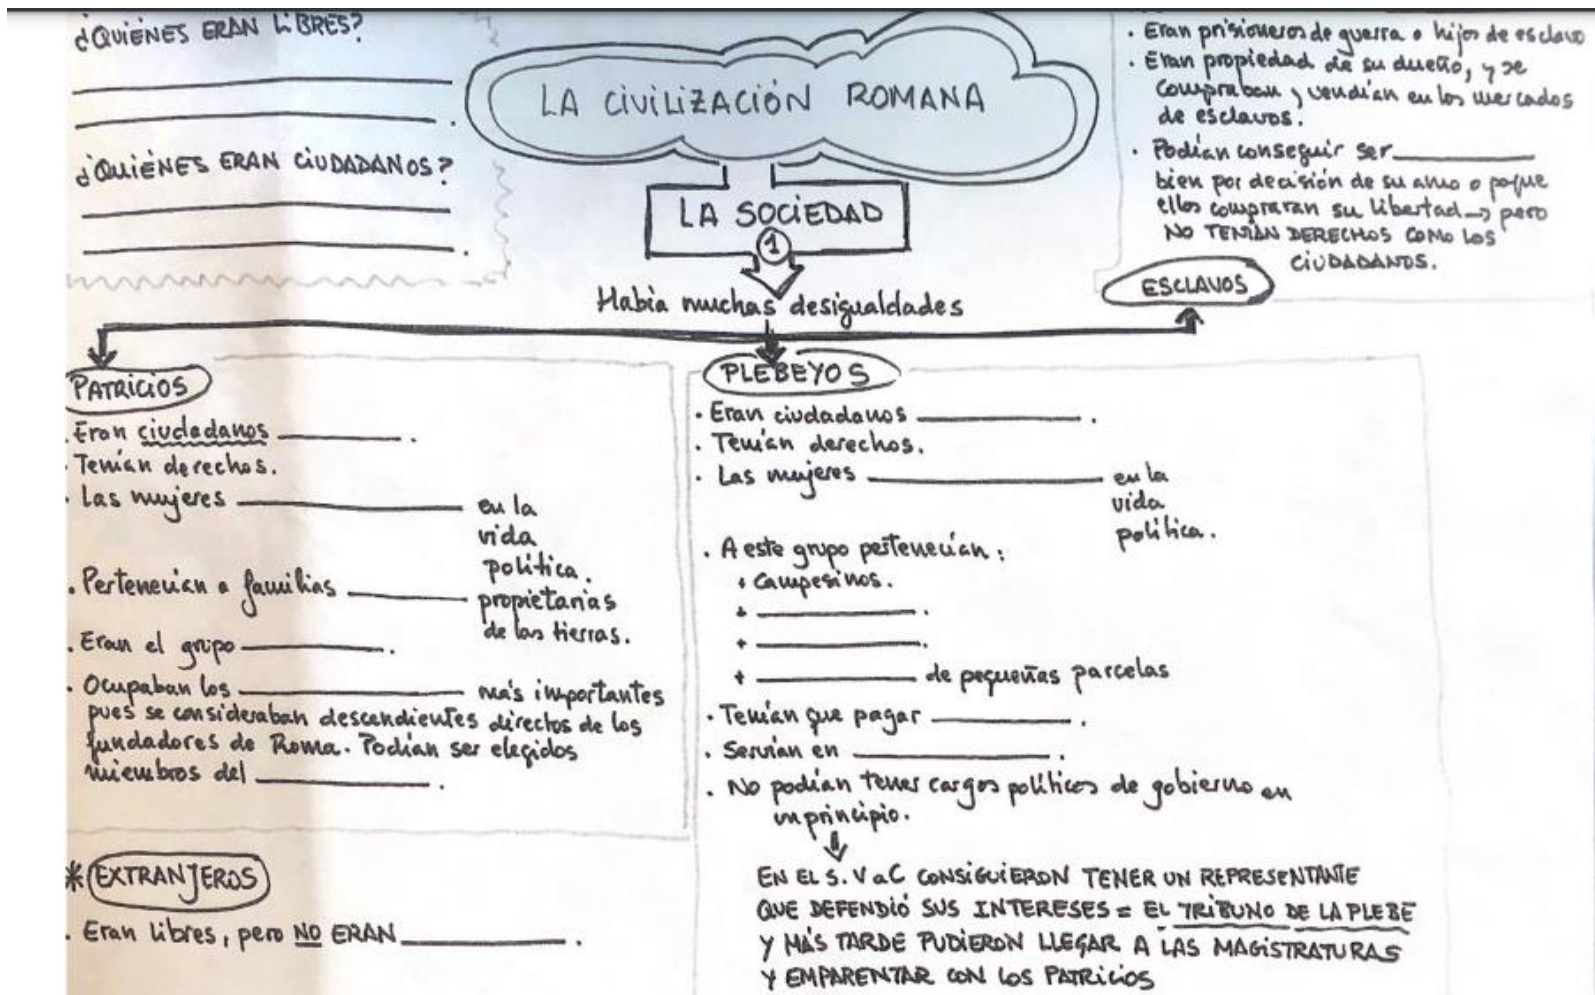 ¿QUIÉNES ERAN LIBRES?
¿QUIÉNES ERAN CIUDADANOS?
LA CIVILIZACIÓN ROMANA
LA SOCIEDAD
1
Había muchas desigualdades
· Eran prisioneros de guerra o hijos de esclavo
· Eran propiedad de su dueño, y se
compraban y vendían en los mercados
de esclavos.
· Podían conseguir ser __________
bien por decisión de su amo o porque
ellos compraran su libertad → pero
NO TENÍAN DERECHOS COMO LOS
CIUDADANOS.
ESCLAVOS
PATRICIOS
· Eran ciudadanos __________.
· Tenían derechos.
· Las mujeres __________ en la
vida
política.
· Pertenecían a familias __________ propietarias
de las tierras.
· Eran el grupo __________.
· Ocupaban los __________ más importantes
pues se consideraban descendientes directos de los
fundadores de Roma. Podían ser elegidos
miembros del __________.
* EXTRANJEROS
· Eran libres, pero NO ERAN __________.
PLEBEYOS
· Eran ciudadanos __________.
· Tenían derechos.
· Las mujeres __________ en la
vida
política.
· A este grupo pertenecían:
+ Campesinos.
+ __________.
+ __________.
+ __________ de pequeñas parcelas
· Tenían que pagar __________.
· Servían en __________.
· No podían tener cargos políticos de gobierno en
un principio.
EN EL S. V aC CONSIGUIERON TENER UN REPRESENTANTE
QUE DEFENDIÓ SUS INTERESES = EL TRIBUNO DE LA PLEBE
Y MÁS TARDE PUDIERON LLEGAR A LAS MAGISTRATURAS
Y EMPARENTAR CON LOS PATRICIOS